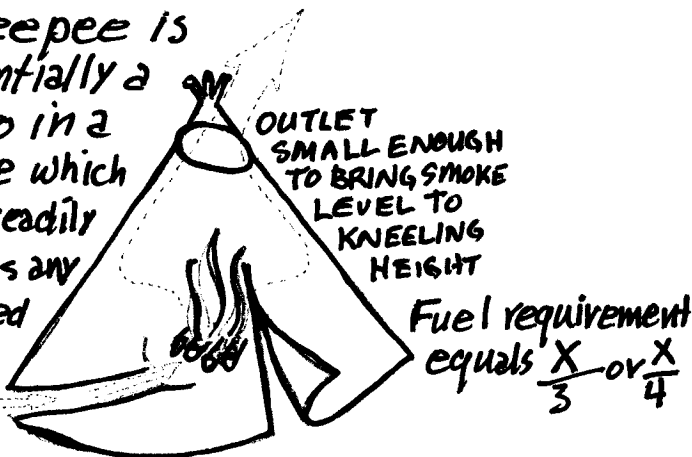 eepee is
ntially a
o in a
e which
eadily
s any
ed
OUTLET
SMALL ENOUGH
TO BRING SMOKE
LEVEL TO
KNEELING
HEIGHT
Fuel requirement
equals X/3 or X/4